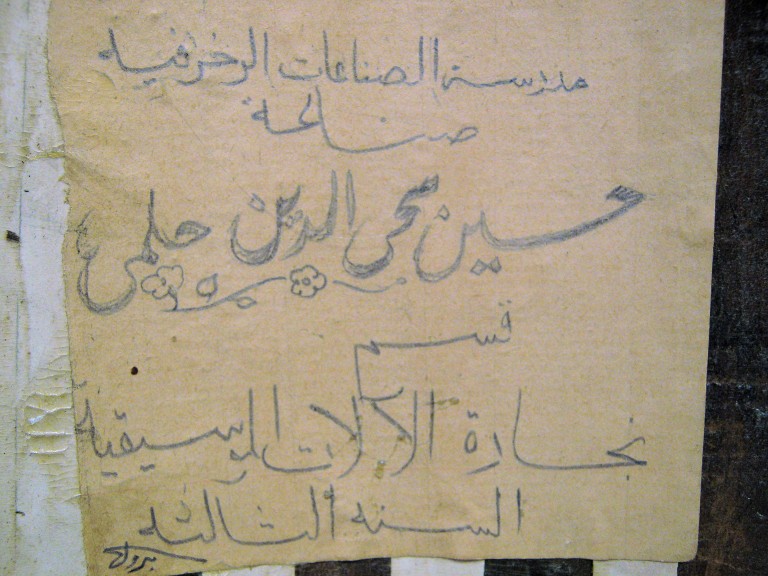 مدرسة الصناعات الزخرفيه
صنالحة
حسين محى الدين حلمى
قسم
نجارة الآلات الموسيقية
السنه الثالثه